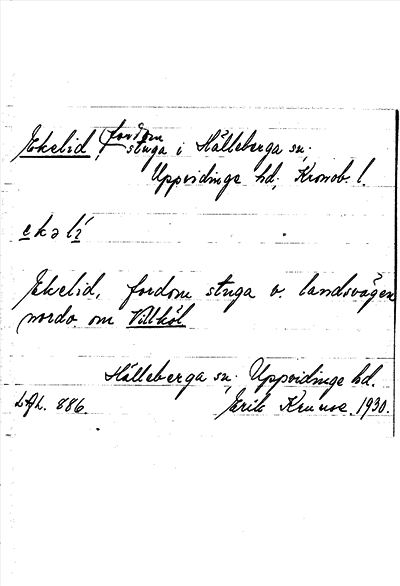 Ekelid, fordom stuga i Hälleberga sn;
Uppvidinge hd; Kronob. l.
ekəlí
Ekelid, fordom stuga v. landsvägen
nordv. om Villköl
Hälleberga sn; Uppvidinge hd.
LAL. 886. Erik Kruuse 1930.